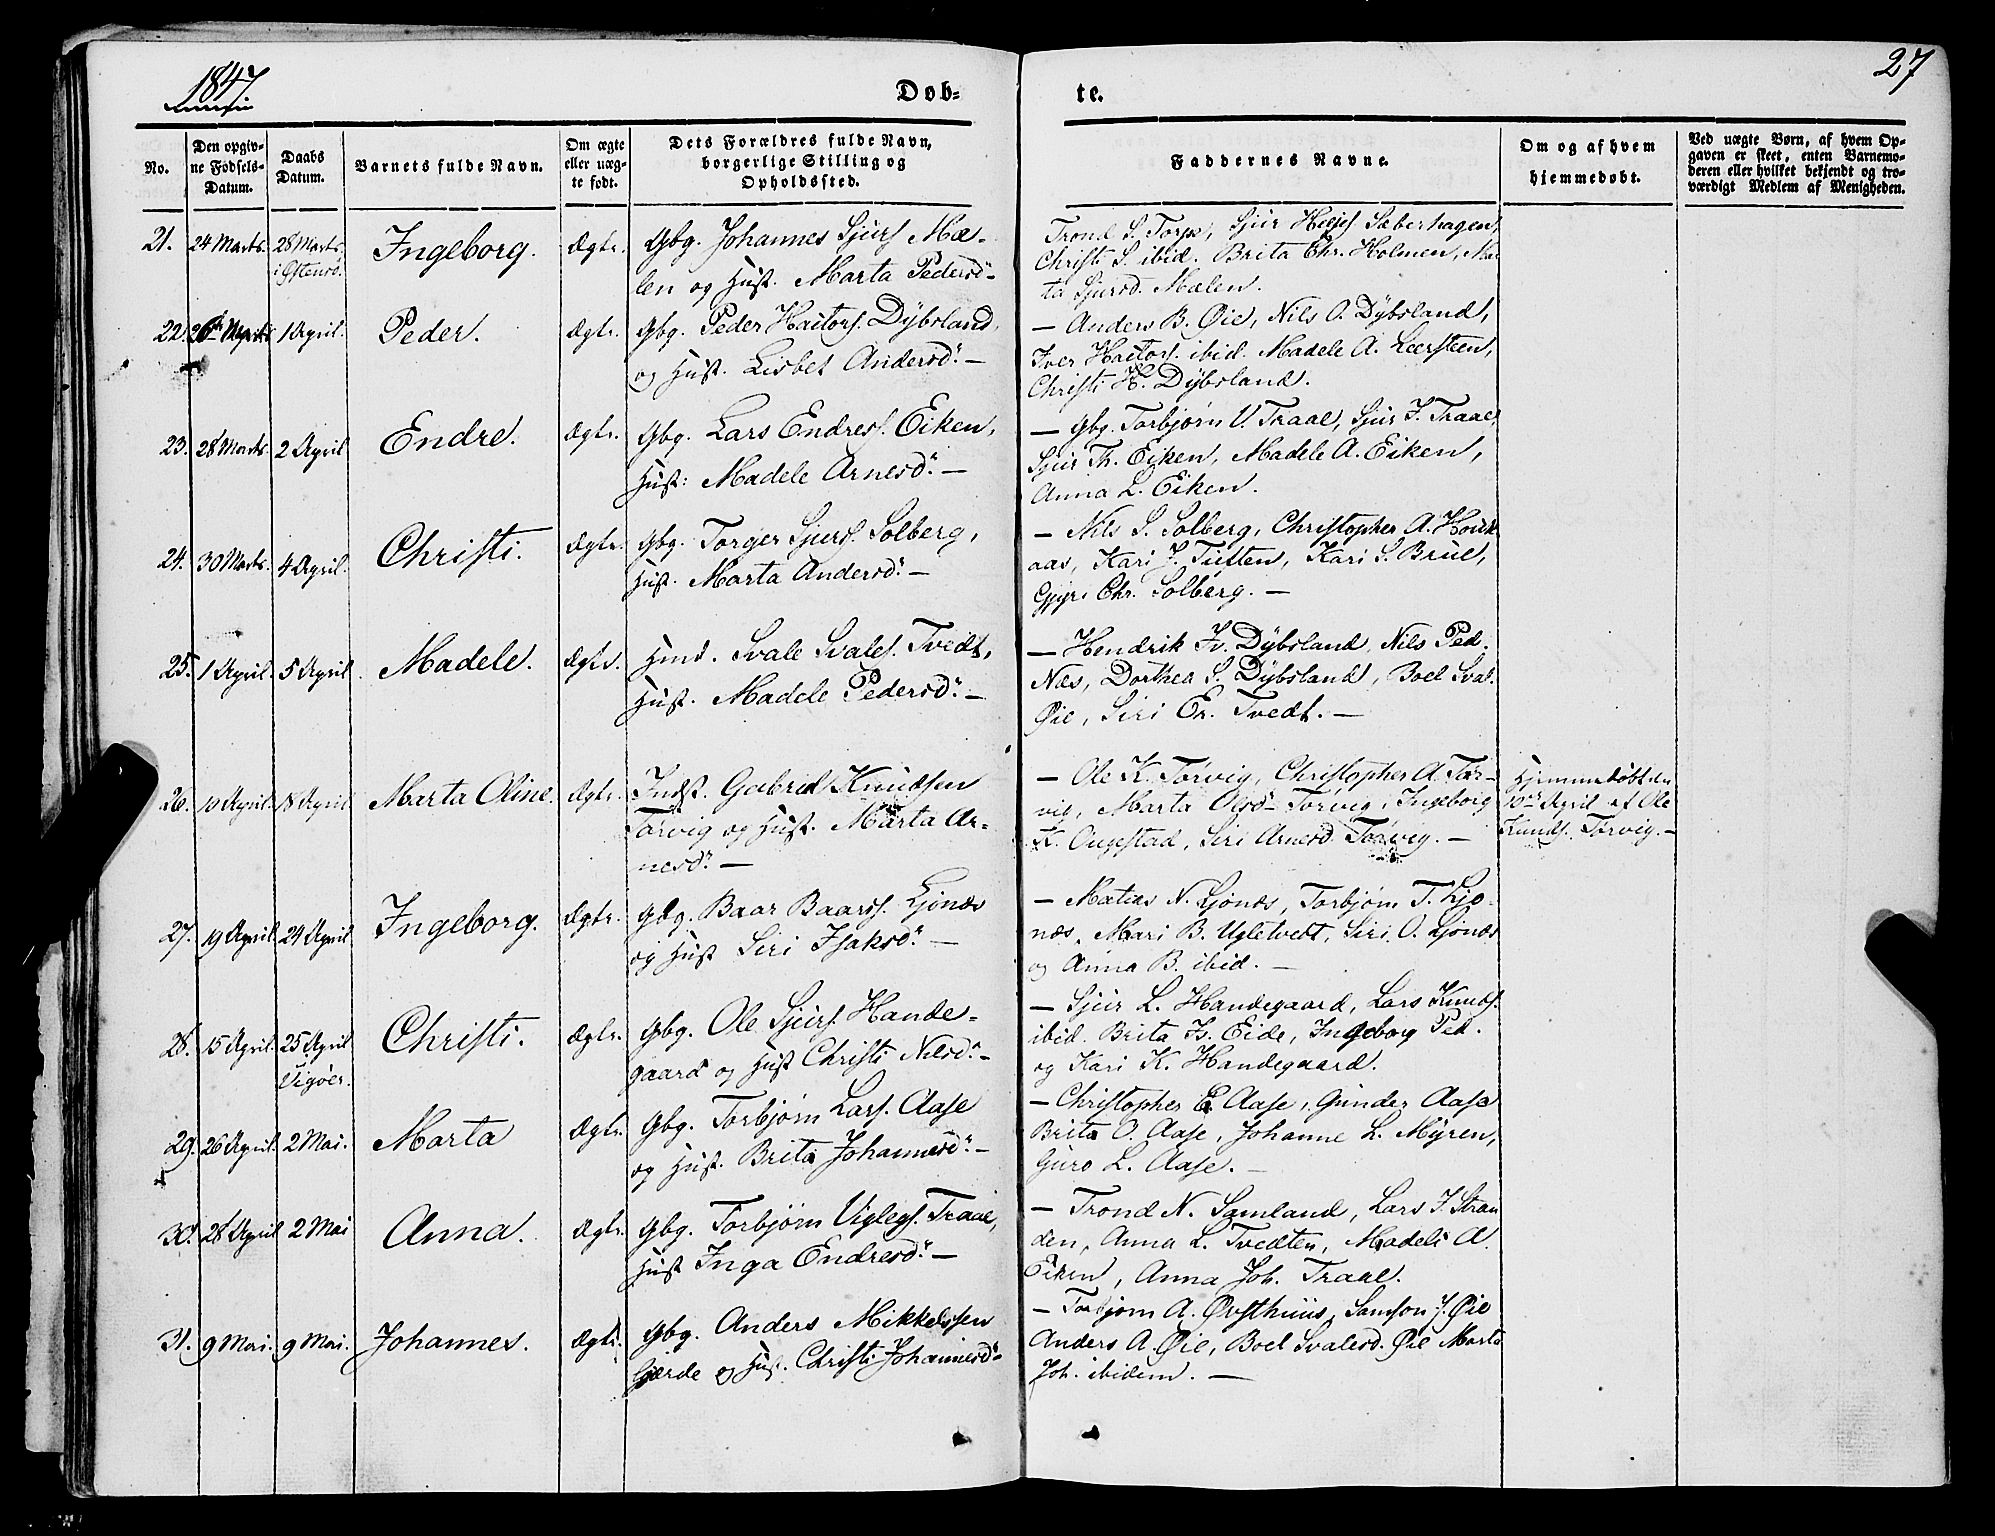 1847.
Døb-
te.
27
No.
Den opgiv-
ne Fødsels-
Datum.
Daabs
Datum.
Barnets fulde Navn.
Om ægte
eller uæg-
te født.
Dets Forældres fulde Navn,
borgerlige Stilling og
Opholdssted.
Faddernes Navne.
Om og af hvem
hjemmedøbt.
Ved uægte Børn, af hvem Op-
gaven er skeet, enten Barnemo-
deren eller hvilket bekjendt og tro-
værdigt Medlem af Menigheden.
21. 24 Marts. 28 Marts Ingeborg. Ægte. Gbg. Johannes Sjurs. Mæ-
i Østensø. len og Hust. Marta Pedersd. -
Trond S. Torpe, Sjur Heljes. Sæberhagen,
Christi S. ibid. Brita Chr. Holmen, Mar
ta Sjursd. Mælen.
22. Marts 1 April. Peder. Ægte. Gbg. Peder Haetors. Dÿbsland,
og Hust. Lisbet Andersd. -
- Anders B. Øie, Nils O. Dÿbsland,
Iver Haetors. ibid. Madele A. Leersteen,
Christi H. Dÿbsland.
23. 28 Marts. 2 April Endre. Ægte. Gbg. Lars Endress. Eiken,
Hust: Madele Arnesd. -
- Gbg. Torbjørn V. Traae, Sjur J. Traae,
Sjur Th. Eiken, Madele A. Eiken,
Anna L. Eiken.
24. 30 Marts. 4 April. Christi. Ægte. Gbg. Torger Sjurs. Solberg,
Hust. Marta Andersd. -
- Nils S. Solberg, Christopher A. Houk
aas, Kari J. Tuften, Kari S. Brue,
Gjyri Chr. Solberg. -
25. 1 April. 5 April Madele. Ægte. Hmd. Svale Svales. Tvedt,
Hust. Madele Pedersd. -
- Hendrik Iv. Dÿbsland, Nils Ped.
Næs, Dorthea S. Dÿbsland, Boel Sval.
Øie, Siri Er. Tvedt. -
26. 10 April. 18 April Marta Oline. Ægte. Indst. Gabriel Knudsen
Torvig og Hust. Marta Ar-
nesd. -
- Ole K. Torvig, Christopher A. Tor-
vig, Marta Olsd. Torvig, Ingeborg
K. Ougestad, Siri Arnesd. Torvig. -
Hjemmedøbt den
10de April af Ole
Knuds. Torvig. -
27. 19 April. 24 April Ingeborg. Ægte. Gbg. Baar Baars. Ljønæs
og Hust Siri Isaksd. -
- Matias N. Ljønæs, Torbjørn T. Ljø-
næs, Mari B. Ugletvedt, Siri O. Ljønæs
og Anna B. ibid. -
28. 15 April. 25 April Christi. Ægte. Gbg. Ole Sjurs. Hande-
Vigøer. gaard og Hust Christi Nilsd. -
- Sjur L. Handegaard, Lars Knuds.
ibid. Brita Is. Eide, Ingeborg Ped.
og Kari K. Handegaard.
29. 26 April. 2 Mai. Marta Ægte. Gbg. Torbjørn Lars. Aase
og Hust. Brita Johannesd. -
- Christopher E. Aase, Gunder Aase
Brita O. Aase, Johanne L. Mÿren,
Guro L. Aase. -
30. 28 April 2 Mai Anna. Ægte. Gbg. Torbjørn Viglegs. Traae,
Hust Inga Endresd. -
- Trond N. Samland, Lars J. Stran
den, Anna L. Tvedten, Madele A.
Eiken, Anna Joh. Traae.
31. 9 Mai. 9 Mai. Johannes. Ægte. Gbg. Anders Mikkelssen
Gjerde og Hust. Christi Johannesd. -
- Torbjørn A. Øvsthuus, Samson J. Øie
Anders A. Øie, Boel Svalesd. Øie Marta
Joh. ibidem. -